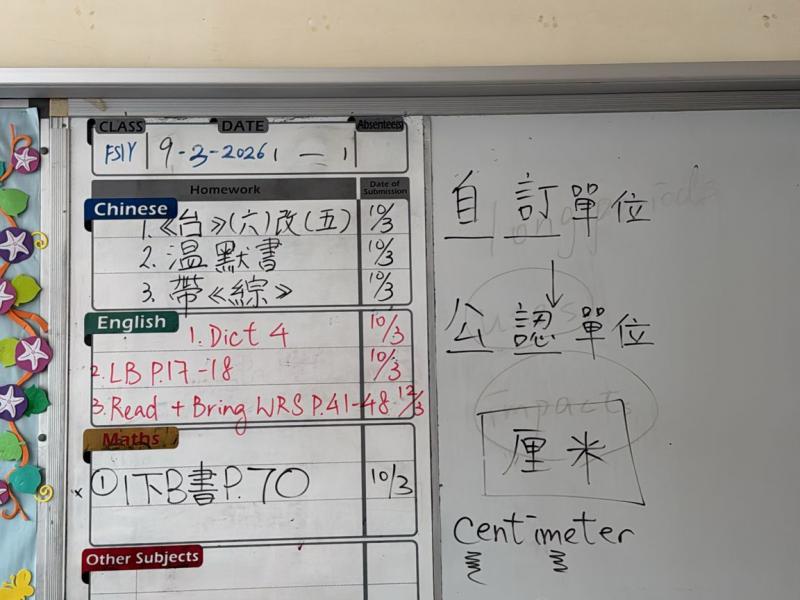 CLASS DATE Absentees
FS1Y 9-3-2026 ( 一 )
Homework Date of Submission
Chinese
1.《台》(六)改(五) 10/3
2. 溫默書 10/3
3. 帶《綜》 10/3
English
1. Dict 4 10/3
2. LB P.17-18 10/3
3. Read + Bring WRS P.41-48 12/3
Maths
① 1下B書P.70 10/3
Other Subjects
自訂單位
↓
公認單位
厘米
centimeter